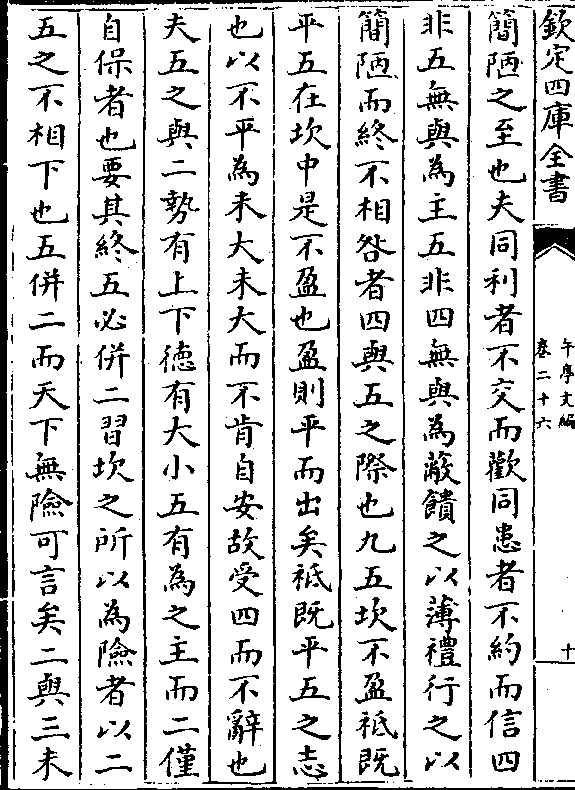 欽定四庫全書
午亭文編
卷二十六
十
簡陋之至也夫同利者不交而歡同患者不約而信四
非五無與為主五非四無與為蔽饋之以薄禮行之以
簡陋而終不相咎者四與五之際也九五坎不盈祗既
平五在坎中是不盈也盈則平而出矣祗既平五之志
也以不平為未大未大而不肯自安故受四而不辭也
夫五之與二勢有上下德有大小五有為之主而二僅
自保者也要其終五必併二習坎之所以為險者以二
五之不相下也五併二而天下無險可言矣二與三未